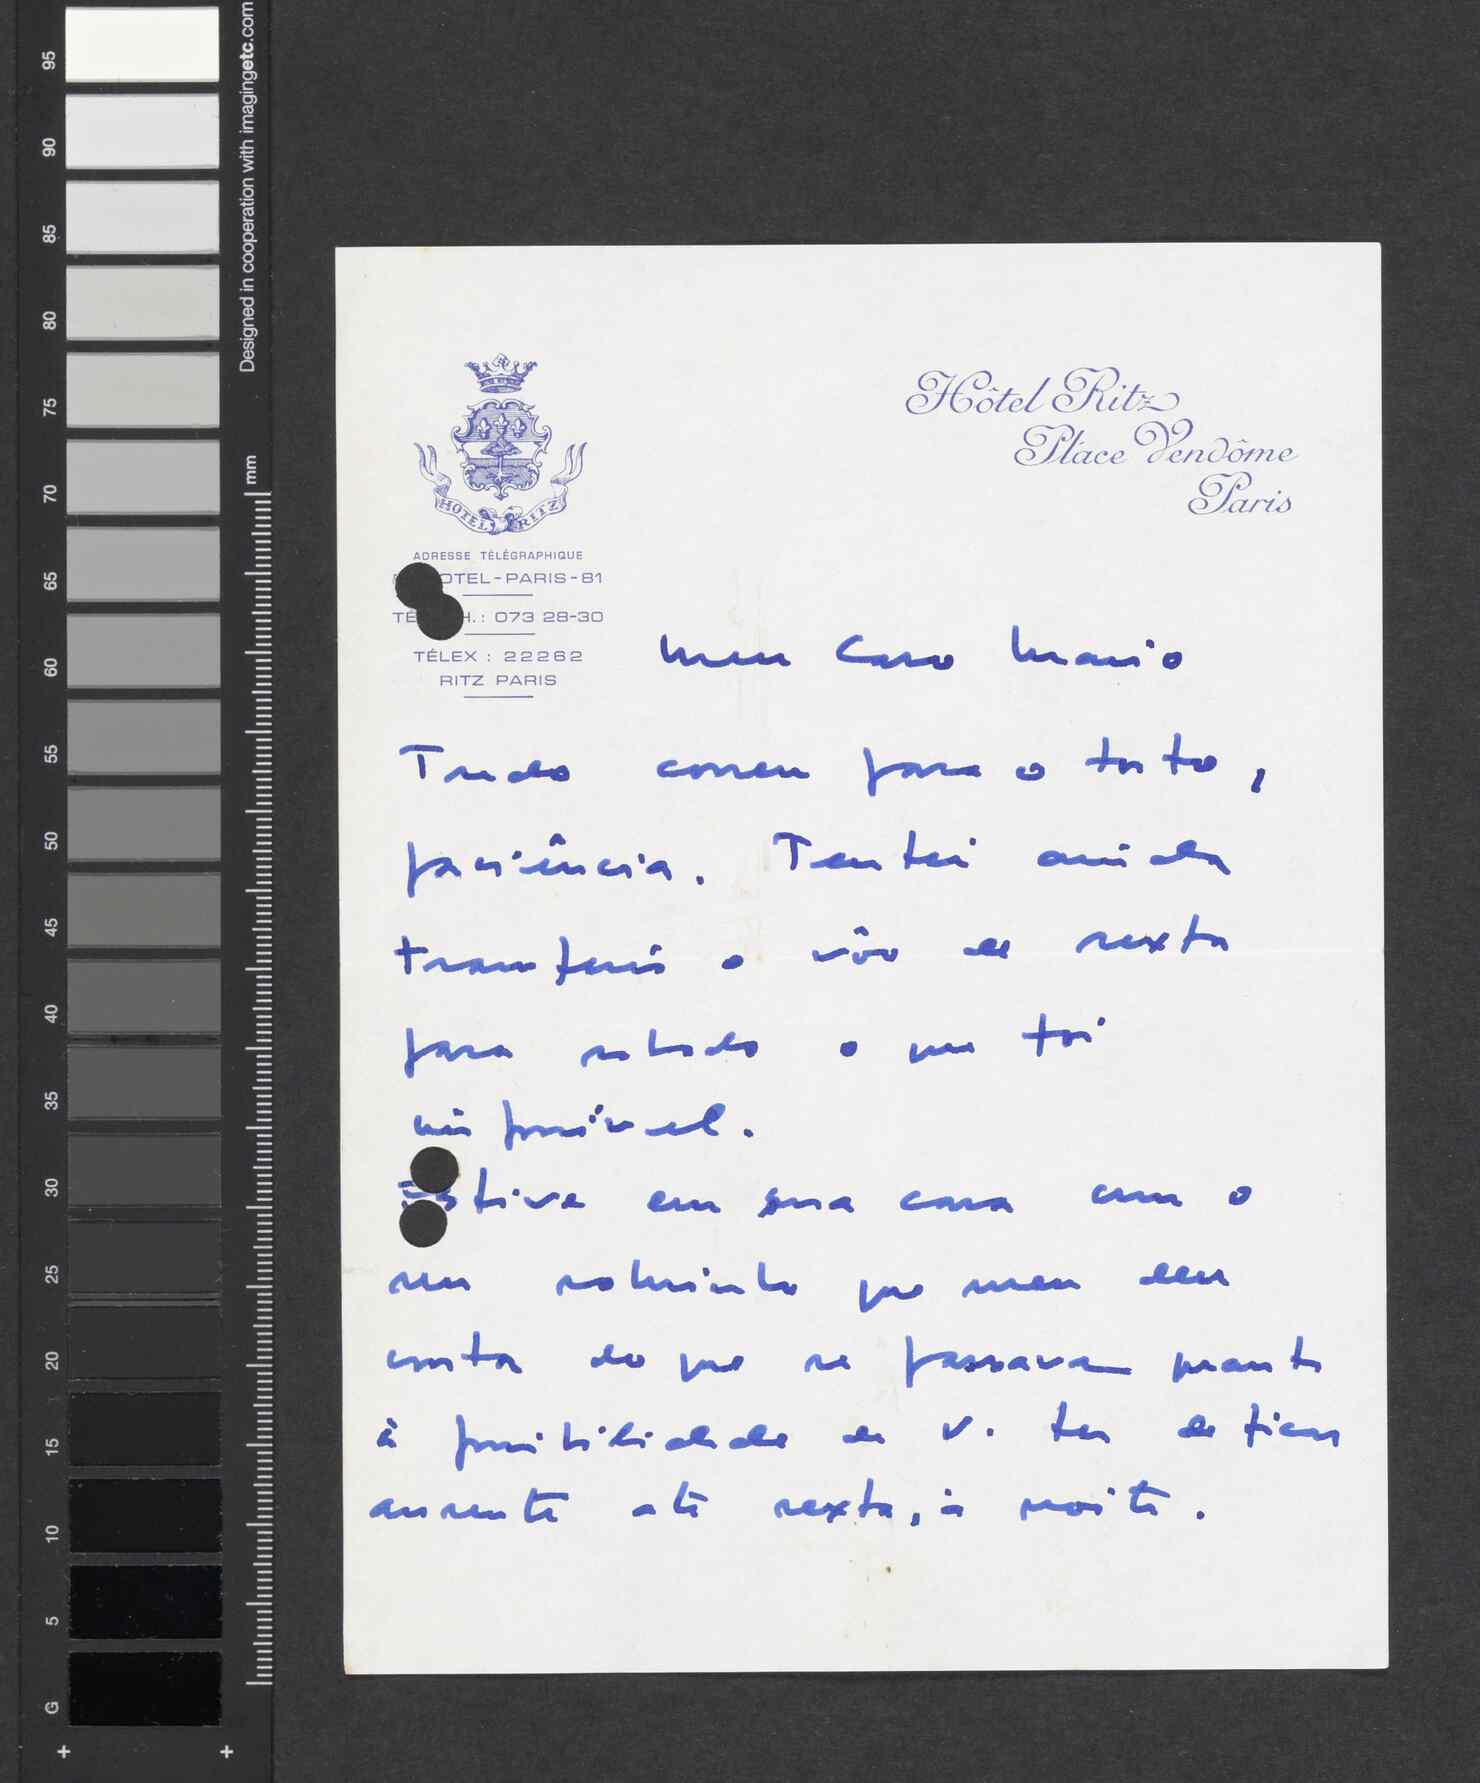 Designed in cooperation with imagingetc.com
mm
95
90
85
80
75
70
65
60
55
50
45
40
35
30
25
20
15
10
5
G
HOTEL RITZ
Hôtel Ritz
Place Vendôme
Paris
ADRESSE TÉLÉGRAPHIQUE
OTEL-PARIS-81
TÉ H.: 073 28-30
TÉLEX : 22262
RITZ PARIS
Meu caro Mario
Tudo correu para o torto,
paciência. Tentei ainda
transferir o vôo de sexta
para sabado o que foi
impossível.
Estive em sua casa com o
seu sobrinho que me deu
conta do que se passava quanto
à possibilidade de V. ter de ficar
ausente até sexta, à noite.